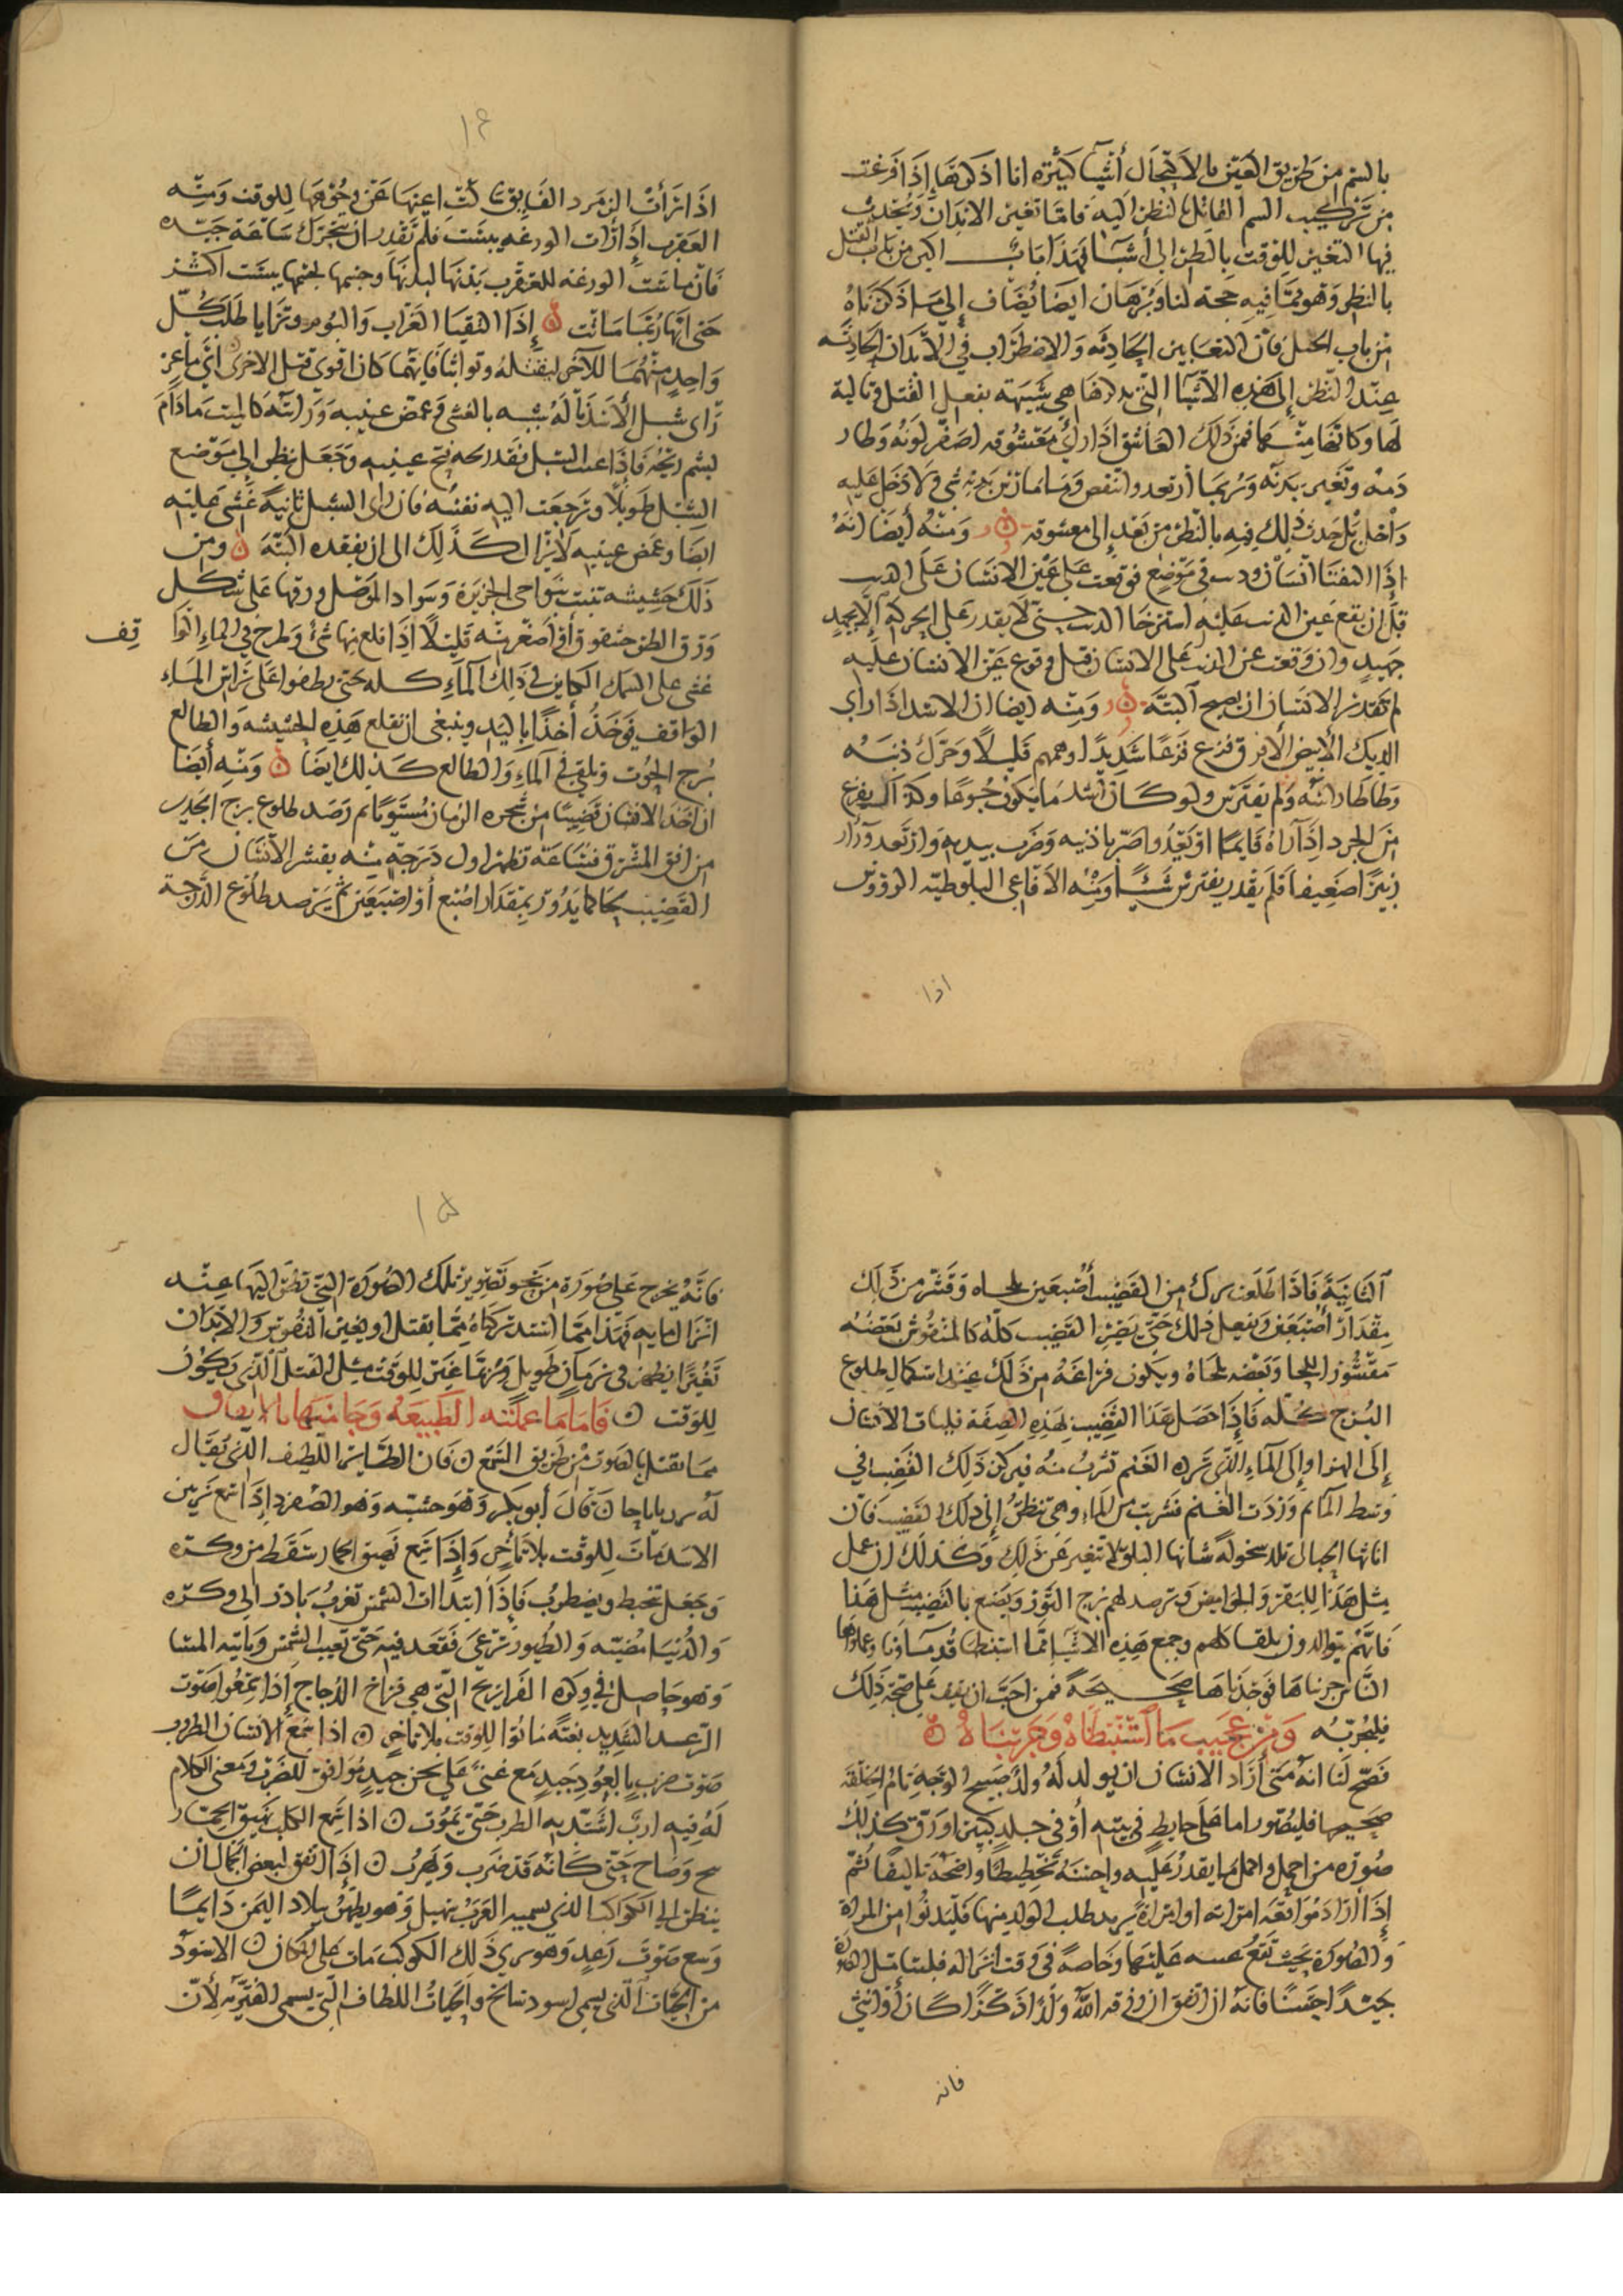 بالسم من طريق العين بالاكتحال أشيا كثيره انا اذكرها إذا فرغت
من تركيب السم القاتل بالنظر اليه فانما تغير الابدان ويحدث
فيها التغير للوقت بالنظر الى أشيآ فهذا باب اكبر من باب القتل
بالنظر وهو مما فيه حجة لنا وبرهان ايضا يضاف إلى ما ذكرناه
من باب الكحل فان التغايير الحادثه والاضطراب في الأبدان الحادثه
عند النظر إلى هذه الاشيا التي هي شبيهة بفعل القتل وتالية
لها وكانها مثلها فمن ذلك العاشق اذا رأى معشوقه اصفر لونه وطار
دمه وتغير بدنه وربما ارتعد وانتفض ولا دخل عليه
داخل بل حدث ذلك فيه بالنظر من بعد إلى معشوقه ومنه أيضا انه
إذا التقيا انسان ودب في موضع فوقعت على عين الانسان على الدب
قبل ان يقع عين الدب عليه استرخا الدب حتى لا يقدر على الحركه إلا بجهد
جهيد وان وقعت عين الدب على الانسان قبل وقوع عين الانسان عليه
لم يقدر الانسان ان يصيح البتة ومنه ايضا ان الاسد اذا راى
الديك الأبيض الافرق فزع فزعا شديدا وهمهم قليلا وحرك ذنبه
وطاطا راسه ولم يفترس ولو كان اشد ما يكون جوعا وكذا يفزع
من الجرد إذا راه قايما او يعدو اصر باذنيه وضرب بيديه وارتعد وزار
زئيرا ضعيفا فلم يقدر يفترس شيئا ومنه الافاعي البلوطيه الروؤس
اذا
١٤
اذا رأت الزمرد الفايق سالت اعينها عن وجوهها للوقت ومنه
العقرب إذا رات الوزغه يبست فلم تقدر ان تتحرك ساعة جيده
فان ماست الوزغه للعقرب بدنها لبدنها وجسمها لجسمها يبست اكثر
حتى انها ربما ماتت إذا التقيا الغراب والبوم وتزايا طلب كل
واحد منهما للآخر ليقتله وتواثبا فايهما كان اقوى قتل الاخرى
راى شبل الأسد بالغشى وغمض عينيه ورايته كالميت مادام
يشم ريحه فاذا فتح عينيه وجعل ينظر إلى موضع
الشبل طويلا وترجعت اليه نفسه فان راى الشبل ثانية غشى عليه
ايضا وغمض عينيه لايزال كذلك الى ان يفقده البتة ومن
ذلك حشيشه تنبت بنواحى الجزيرة وسواد الموصل ورقها على شكل
ورق او اصغر منه قليلا اذا قلع منها شئ وطرح في الماء الوا
قف
غشى على السمك الكاين في ذلك المآء كله حتى يطفوا على راس الماء
الواقف فيوخذ أخذا باليد وينبغى ان تقلع هذه الحشيشه والطالع
برج الحوت وتلقى في المآء والطالع كذلك ايضا ومنه أيضا
ان اخذ الانسان قضيبا من شجره الرمان مستويا ثم رصد طلوع برج الجدى
من افق المشرق فساعة تظهر اول درجة منه يقشر الانسان من
القضيب كما يدور بمقدار اصبع أو اصبعين ثم يرصد طلوع الدرجة
الثانية فاذا طلعت ترك من القضيب أصبعين بلحاه وقشر من ذلك
مقدار أصبعين ويفعل ذلك حتى يصير القضيب كله كالمنقوش بعضه
مقشور اللحا وبعضه بلحاه ويكون فراغه من ذلك عند استكمال طلوع
البرج كله فاذا حصل هذا القضيب بهذه الصفة فليات الانسان
إلى النهر او إلى المآء الذي الغنم تشرب منه فيركز ذلك القضيب في
وسط المآ ثم وردت الغنم فشربت من الماء وهي تنظر إلى ذلك القضيب فان
اناثها الحبالى تلد سخوله شانها البلق لا تتغير عن ذلك وكذلك ان عمل
مثل هذا للبقر والجواميس وترصد لهم برج الثور ويضع بالقضيب مثل هذا
فانهم يتوالدون بلقا كلهم وجمع هذه الاشيا مما استنبط قدمآونا وعلماوها
النا جربناها فوجدناها صحيحة فمن احب ان يقف على صحة ذلك
فليجربه ومن عجيب ما استنبطاه وجربناه
فصح لنا انه متى أراد الانسان ان يولد له ولد صبيح الوجه تام الخلقة
صحيحها فليصور اما على حايط في بيته أو في جلد كبير او رق كذلك
صوره من اجمل واحمل ما يقدر عليه واحسنه تخطيطا واضحة تاليفا ثم
إذا أراد مواقعة امراته او امراة يريد طلب الولد منها فليدنوا من المراة
والصورة بحيث تقع عينه عليها وخاصة في وقت انزاله فليتامل الصورة
جيدا حسنا فانه ان اتفق ان رزقه الله ولدا ذكرا كان أو انثى
فانه
١٥
فانه يخرج على صورة من نحو تصوير تلك الصورة التي نظر اليها عند
انزال مايه فهذا مما استدركناه مما يقتل او يغير النفوس والابدان
تغيرا يظهر في زمان طويل وربما غير للوقت مثل القتل الذي يكون
للوقت فاما ما عملته الطبيعه وجانبها بالاتفاق
مما يقتل بالصوت من طريق السمع فان الطاير اللطيف الذي يقال
له قال أبو بكر وهو حشيه وهو الصفرد إذا سمع زئير
الاسد مات للوقت بلا تاخر وإذا سمع نهيق الحمار سقط من وكره
وجعل يتخبط ويضطرب فاذا ابتدات الشمس تغرب بادر الى وكره
والدنيا مضيه والطيور ترعى فقعد فيه حتى تغيب الشمس وياتيه المسا
وهو حاصل في وكره الفراريج التي هي فراخ الدجاج إذا سمعوا صوت
الرعد الشديد بغتة ماتوا للوقت بلا تاخر اذا سمع الانسان الطروب
صوت ضرب بالعود جيد مع غنى على لحن جيد موافق للضرب ومعنى الكلام
له فيه ارب اشتد به الطرب حتى يموت اذا سمع الكلب نهيق الحمار
وصاح حتى كانه قد ضرب ويهرب إذا اتفق لبعض الجمال ان
ينظر الى الكواكب الذي يسميه العرب سهيل وهو يظهر ببلاد اليمن دايما
وسمع صوت رعد وهو يرى ذلك الكوكب مات على المكان الاسود
من الحيات الذي يسمى اسود سالخ والحيات اللطاف التي يسمى لأن